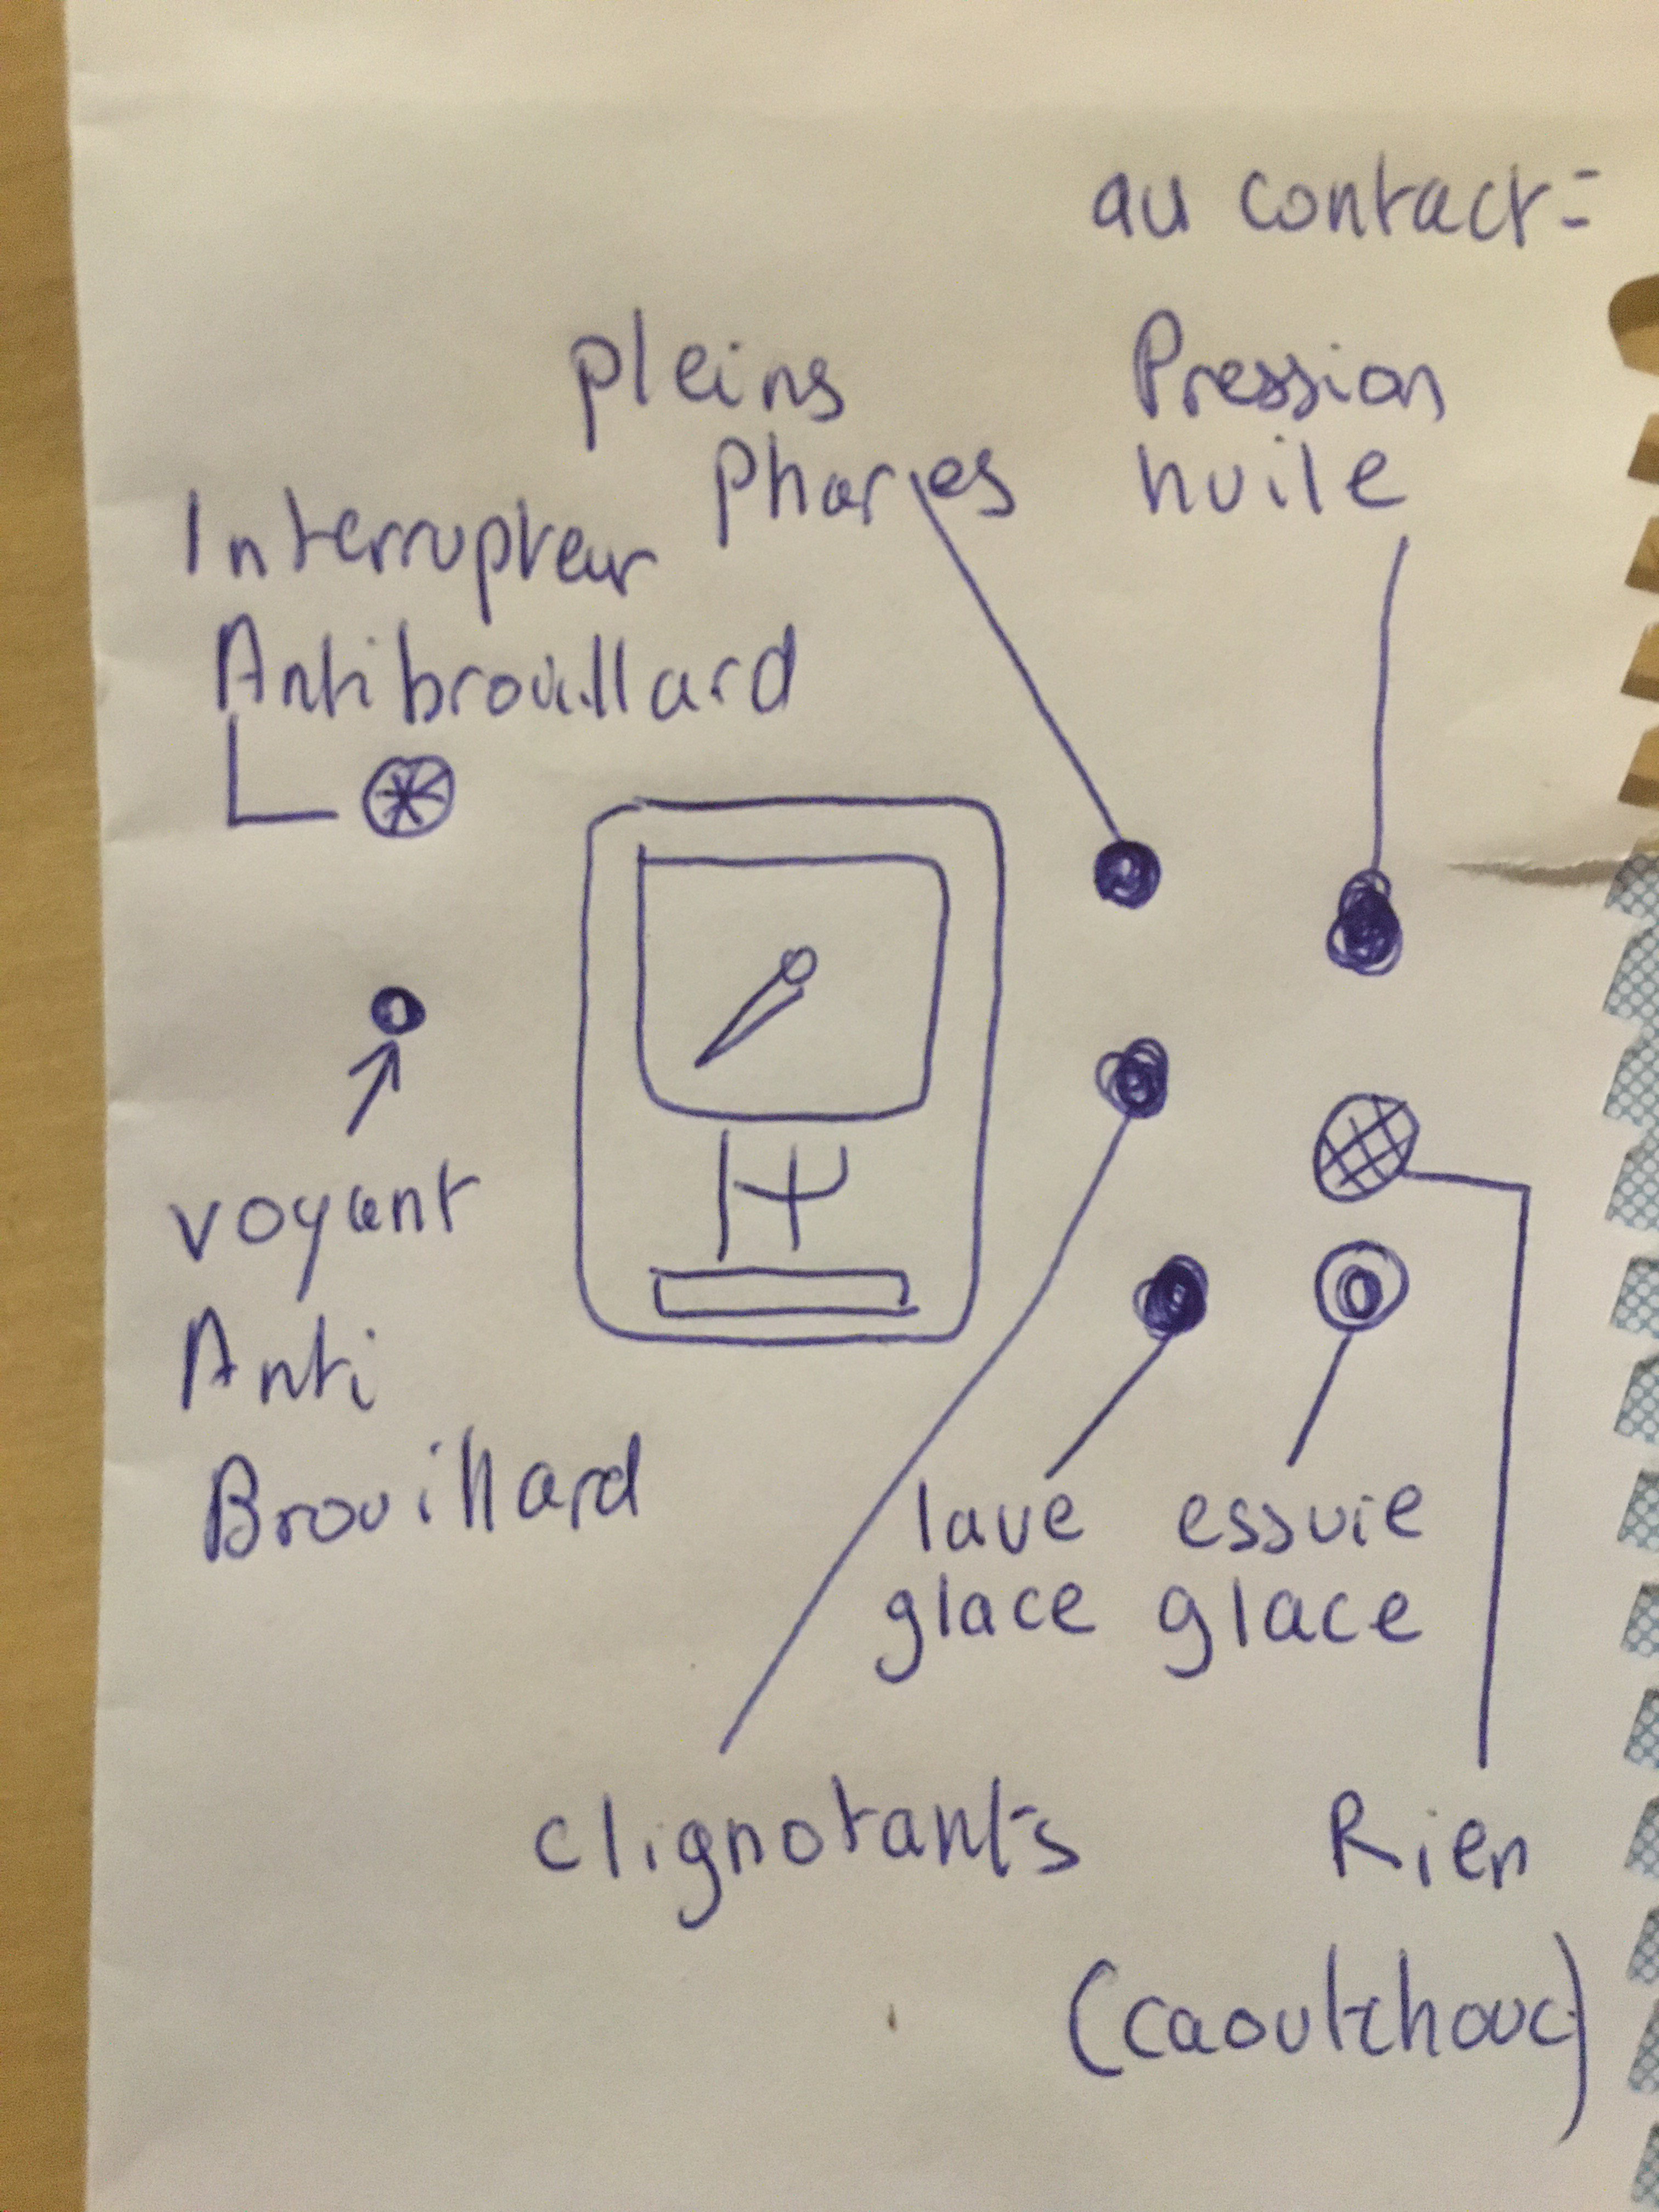 au contact =
pleins
Phares
Pression
huile
Interrupteur
Antibrouillard
voyant
Anti
Brouillard
lave
glace
essuie
glace
clignotants
Rien
(caoutchouc)